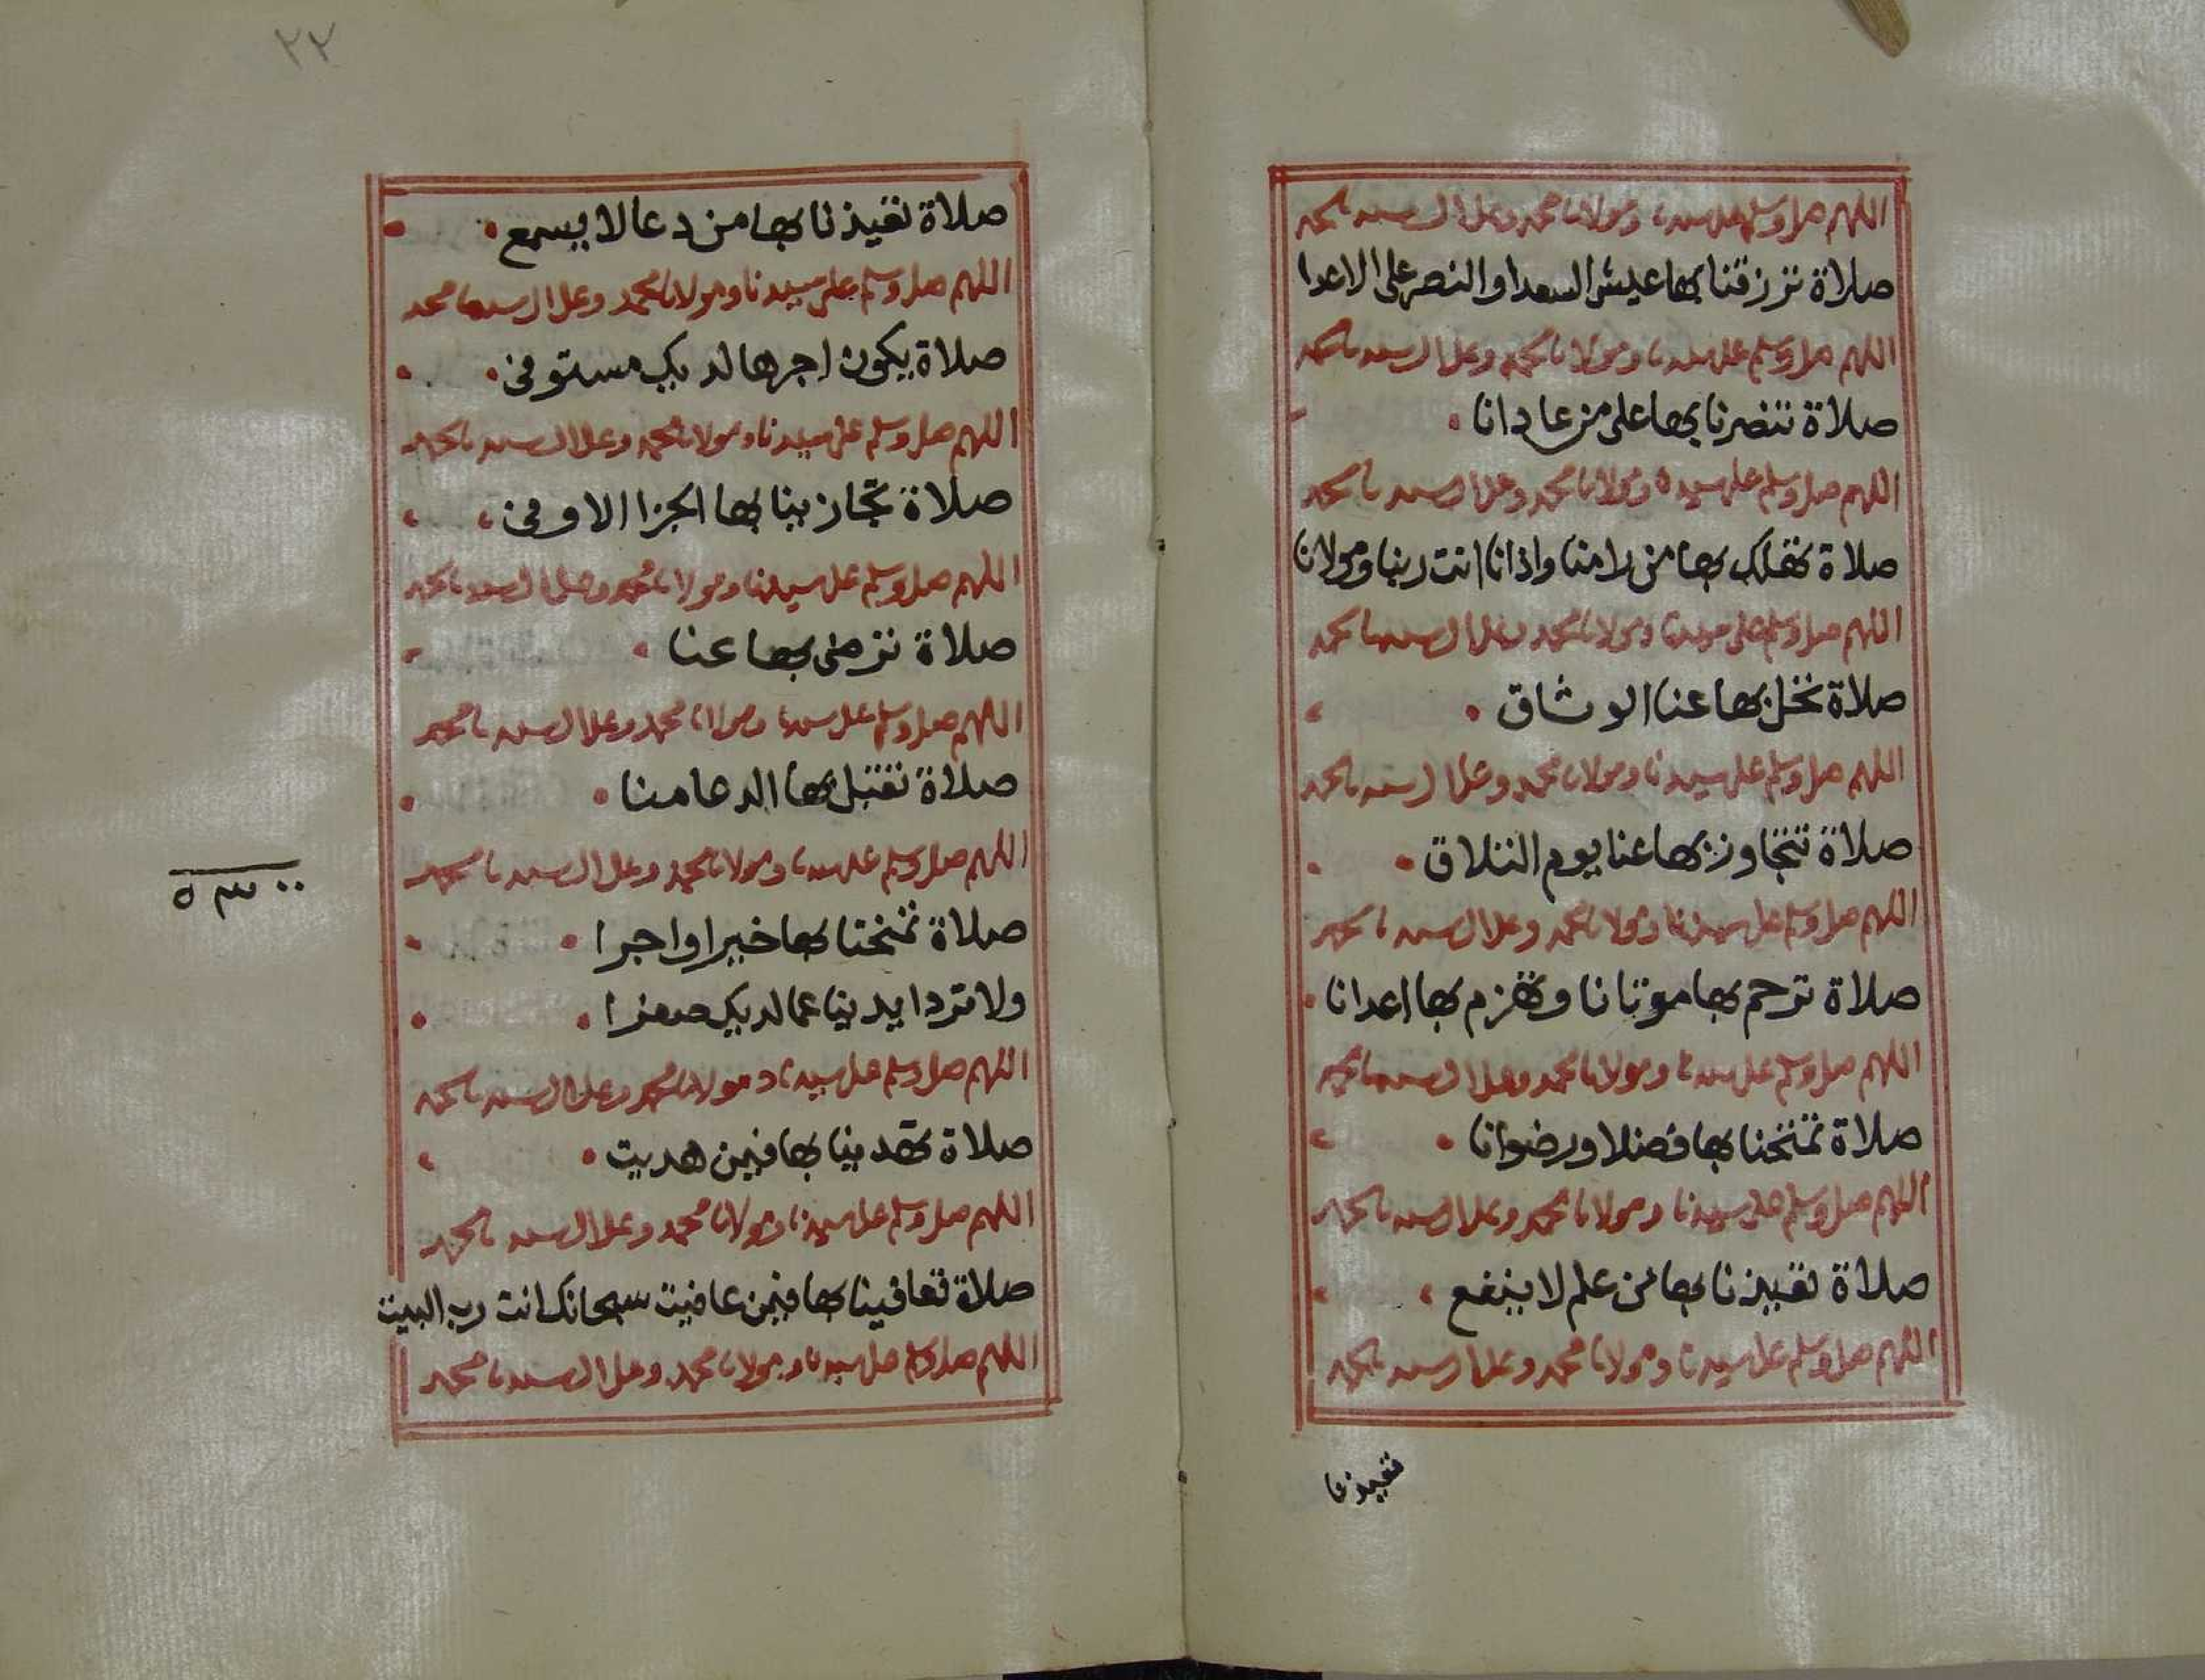 اللهم صل وسلم على سيدنا ومولانا محمد وعلى ال سيدنا محمد
صلاة ترزقنا بها عيش السعدا والنصر على الاعدا
اللهم صل وسلم على سيدنا ومولانا محمد وعلى ال سيدنا محمد
صلاة تنصرنا بها على من عادانا
اللهم صل وسلم على سيدنا ومولانا محمد وعلى ال سيدنا محمد
صلاة تهلك بها من رامنا واذانا انت ربنا ومولانا
اللهم صل وسلم على سيدنا ومولانا محمد وعلى ال سيدنا محمد
صلاة تحل بها عنا الوثاق
اللهم صل وسلم على سيدنا ومولانا محمد وعلى ال سيدنا محمد
صلاة تتجاوز بها عنا يوم التلاق
اللهم صل وسلم على سيدنا ومولانا محمد وعلى ال سيدنا محمد
صلاة ترحم بها موتانا وتهزم بها اعدانا
اللهم صل وسلم على سيدنا ومولانا محمد وعلى ال سيدنا محمد
صلاة تمنحنا بها فضلا ورضوانا
اللهم صل وسلم على سيدنا ومولانا محمد وعلى ال سيدنا محمد
صلاة تعيذنا بها من علم لا ينفع
اللهم صل وسلم على سيدنا ومولانا محمد وعلى ال سيدنا محمد
تعيذنا
٢٢
صلاة تعيذنا بها من دعا لا يسمع
اللهم صل وسلم على سيدنا ومولانا محمد وعلى ال سيدنا محمد
صلاة يكون اجرها لديك مستوفى
اللهم صل وسلم على سيدنا ومولانا محمد وعلى ال سيدنا محمد
صلاة تجازينا بها الجزا الاوفى
اللهم صل وسلم على سيدنا ومولانا محمد وعلى ال سيدنا محمد
صلاة ترضى بها عنا
اللهم صل وسلم على سيدنا ومولانا محمد وعلى ال سيدنا محمد
صلاة تقبل بها الدعا منا
اللهم صل وسلم على سيدنا ومولانا محمد وعلى ال سيدنا محمد
صلاة تمنحنا بها خيرا واجرا
ولا ترد ايدينا عما لديك صفرا
اللهم صل وسلم على سيدنا ومولانا محمد وعلى ال سيدنا محمد
صلاة تهدينا بها فيمن هديت
اللهم صل وسلم على سيدنا ومولانا محمد وعلى ال سيدنا محمد
صلاة تعافينا بها فيمن عافيت سبحانك انت رب البيت
اللهم صل وسلم على سيدنا ومولانا محمد وعلى ال سيدنا محمد